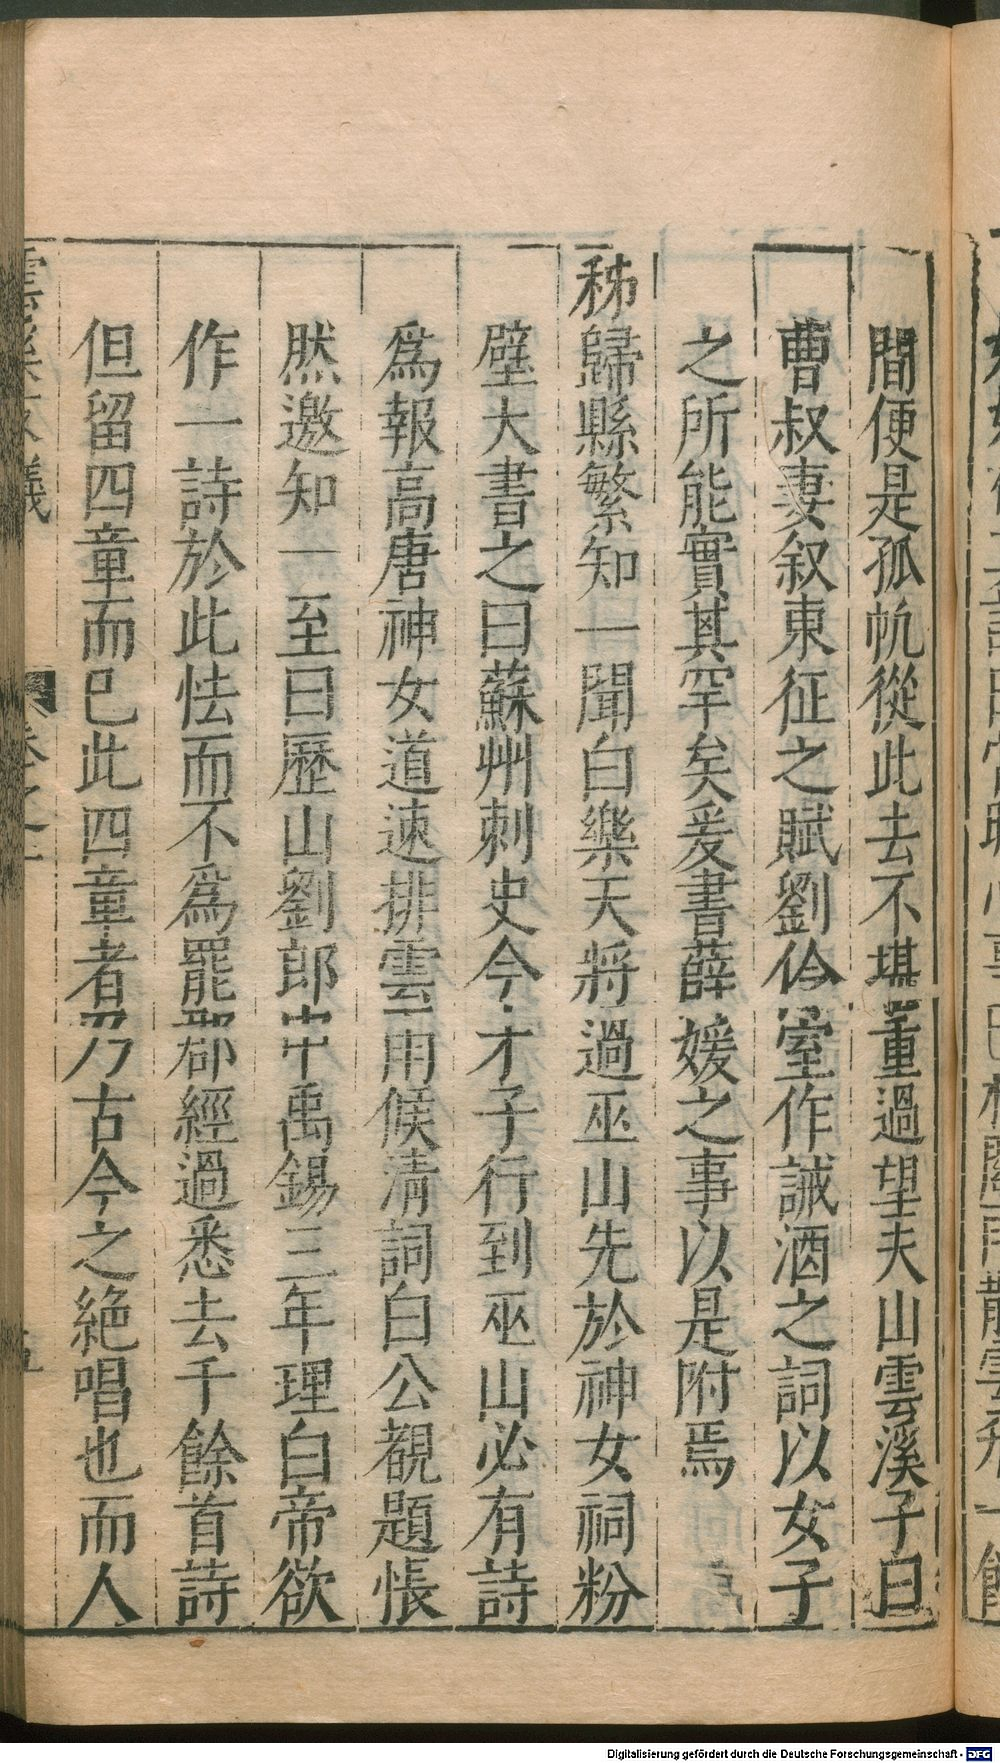 間便是孤帆從此去不堪重過望夫山雲溪子曰
曹叔妻叙東征之賦劉伶室作誡酒之詞以女子
之所能實其罕矣爰書薛媛之事以是附焉
秭歸縣繁知一聞白樂天將過巫山先於神女祠粉
壁大書之曰蘇州刺史今才子行到巫山必有詩
爲報高唐神女道速排雲雨候清詞白公覩題悵
然邀知一至曰歷山劉郎中禹錫三年理白帝欲
作一詩於此怯而不爲罷郡經過悉去千餘首詩
但留四章而已此四章者乃古今之絶唱也而人
Digitalisierung gefördert durch die Deutsche Forschungsgemeinschaft - DFG